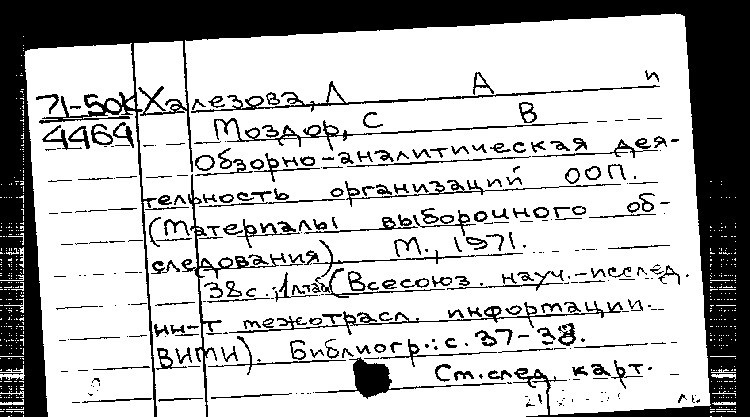 71-50К Халезова, Л А и
4464 Моздор, С В
Обзорно-аналитическая дея-
тельность организаций ООП.
(Материалы выборочного об-
следования). М., 1971.
38с.; 1 л.таб (Всесоюз. науч.-исслед.
ин-т межотрасл. информации.
ВИМИ). Библиогр.: с. 37-38.
См. след. карт.